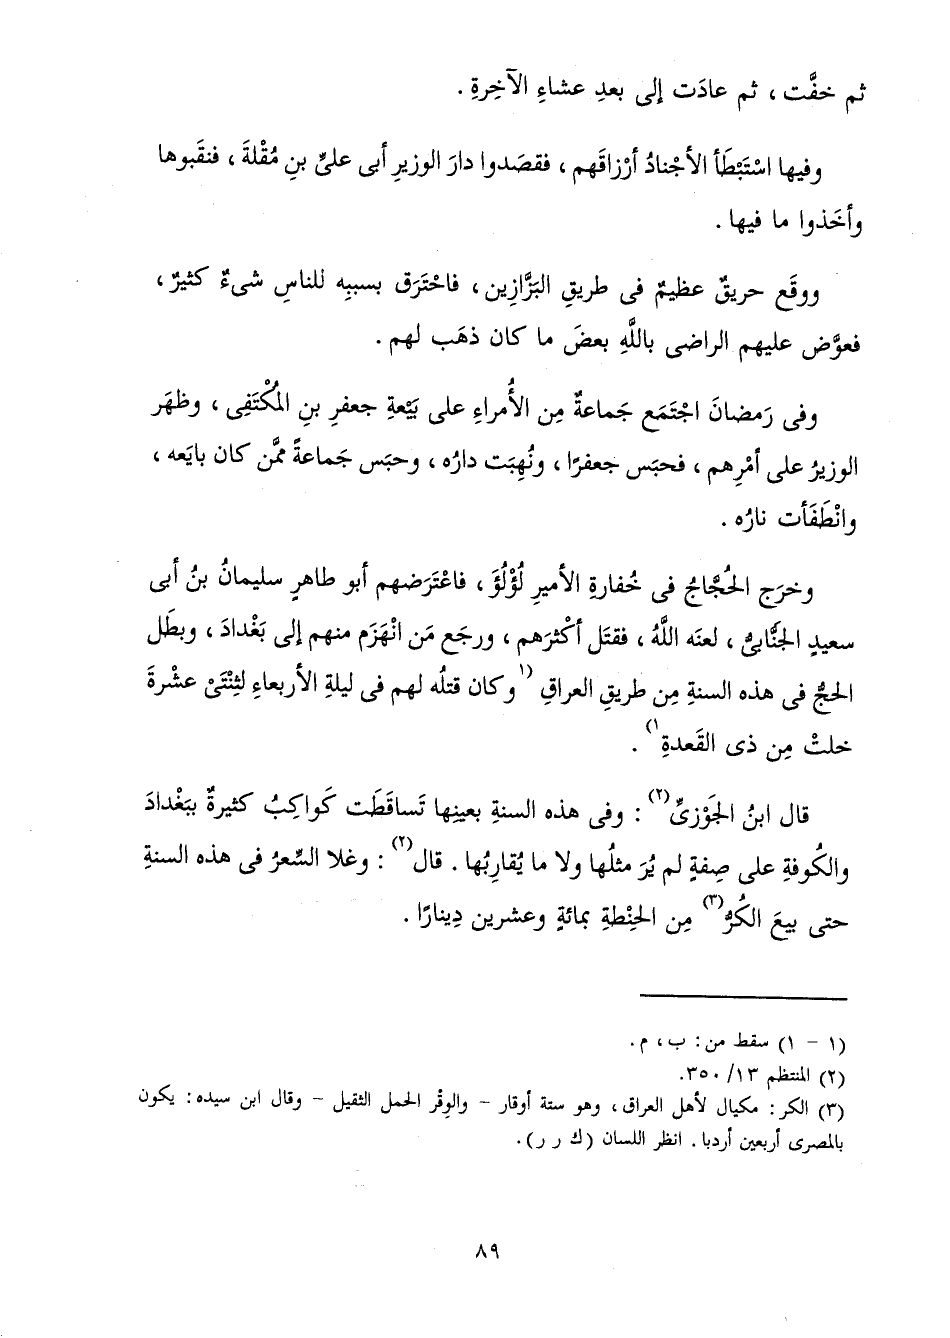 ثم خفَّت ، ثم عادَت إلى بعدِ عشاءِ الآخِرةِ .
وفيها اسْتَبْطَأ الأجْنادُ أرْزاقَهم ، فقصَدوا دارَ الوزيرِ أبى علىِّ بنِ مُقْلةَ ، فنقَبوها
وأخَذوا ما فيها .
ووقَع حريقٌ عظيمٌ فى طريقِ البَزَّازِين ، فاحْتَرَق بسببِه للناسِ شىءٌ كثيرٌ ،
فعوَّض عليهم الراضى باللَّهِ بعضَ ما كان ذهَب لهم .
وفى رَمضانَ اجْتَمَع جَماعةٌ مِن الأُمراءِ على بَيْعةِ جعفرِ بنِ المُكْتَفِى ، وظهَر
الوزيرُ على أمْرِهم ، فحبَس جعفرًا ، ونُهِبَت دارُه ، وحبَس جَماعةً ممَّن كان بايَعه ،
وانْطَفَأت نارُه .
وخرَج الحُجَّاجُ فى خُفارةِ الأميرِ لُؤْلُؤَ ، فاعْتَرَضهم أبو طاهرٍ سليمانُ بنُ أبى
سعيدٍ الجَنَّابىُّ ، لعنَه اللَّهُ ، فقتَل أكْثرَهم ، ورجَع مَن انْهَزَم منهم إلى بَغْدادَ ، وبطَل
الحجُّ فى هذه السنةِ مِن طريقِ العراقِ (١وكان قتلُه لهم فى ليلةِ الأربعاءِ لِثِنْتَىْ عشْرةَ
خلتْ مِن ذى القَعدةِ١) .
قال ابنُ الجَوْزىِّ(٢) : وفى هذه السنةِ بعينِها تَساقَطَت كَواكِبُ كثيرةٌ ببَغْدادَ
والكُوفةِ على صِفةٍ لم يُرَ مثلُها ولا ما يُقارِبُها . قال(٢) : وغلا السِّعرُ فى هذه السنةِ
حتى بِيعَ الكُرُّ(٣) مِن الحِنْطةِ بمائةٍ وعشرين دِينارًا .
(١ - ١) سقط من : ب ، م .
(٢) المنتظم ١٣/ ٣٥٠.
(٣) الكر : مكيال لأهل العراق ، وهو ستة أوقار - والوِقْر الحمل الثقيل - وقال ابن سيده : يكون
بالمصرى أربعين أردبا . انظر اللسان (ك ر ر) .
٨٩